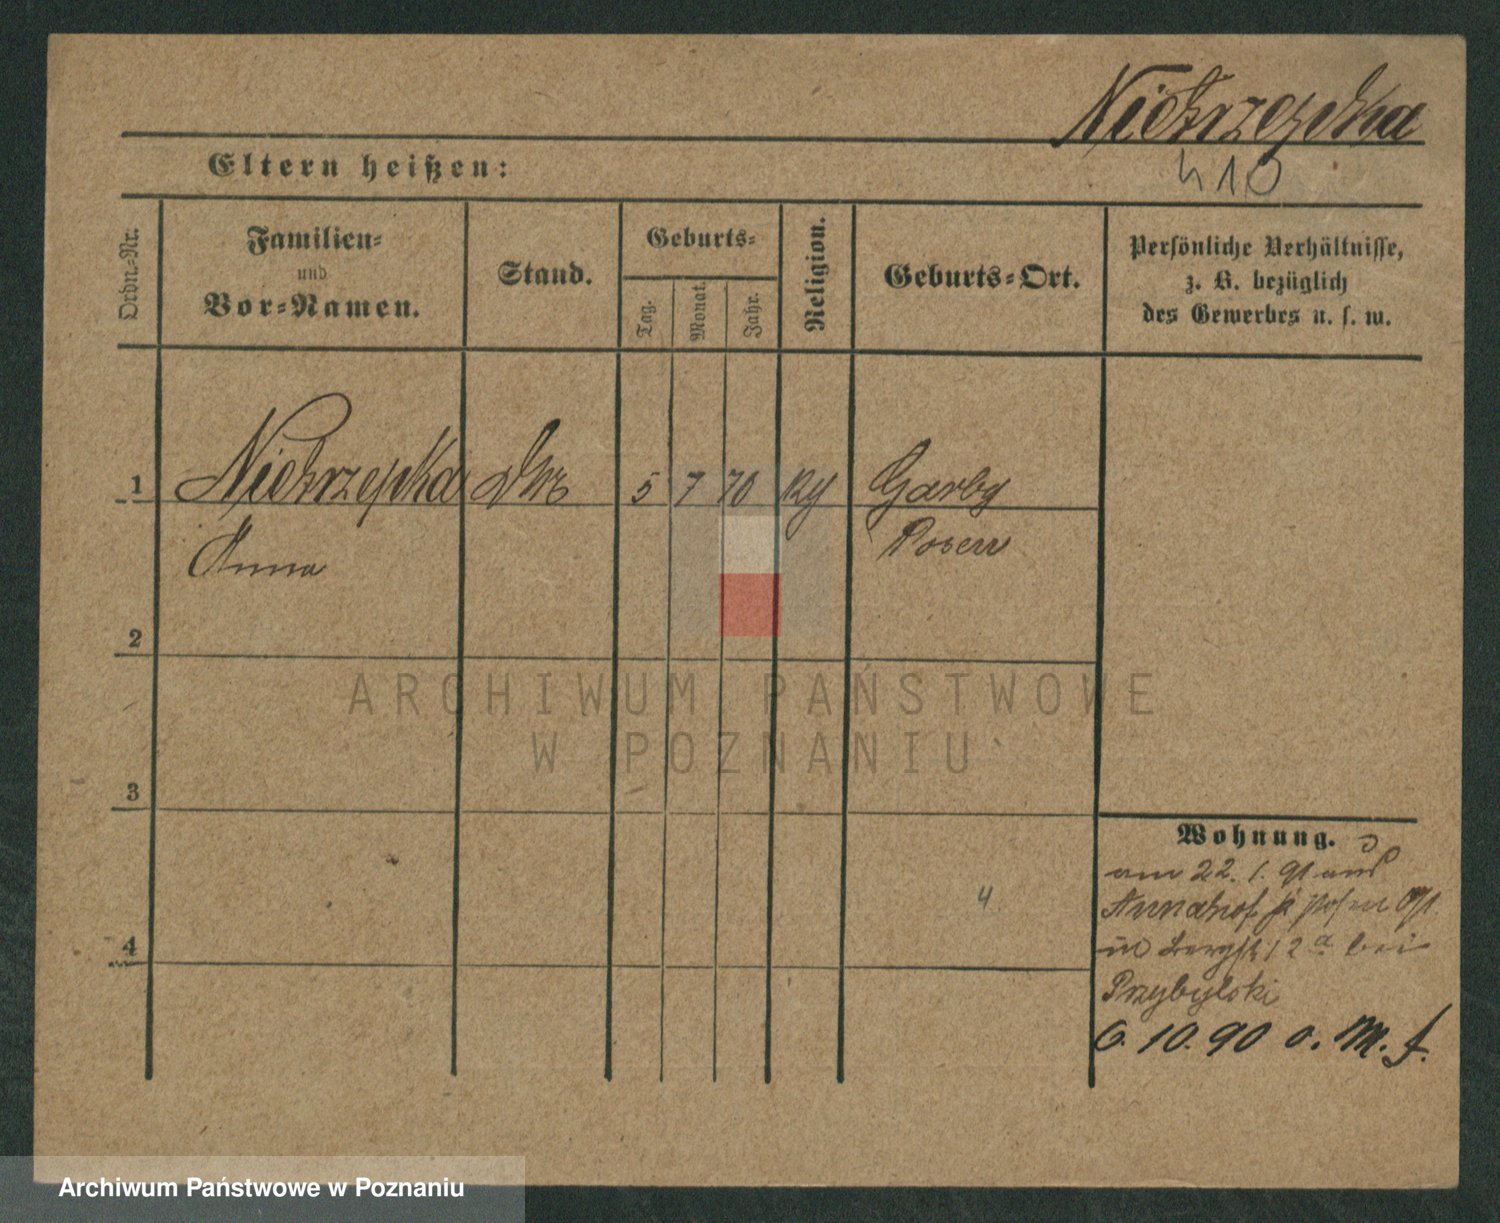 Niedrzejska
410
Eltern heißen:
Ordn.-Nr.
Familien-
und
Vor-Namen.
Stand.
Geburts-
Tag.
Monat.
Jahr.
Religion.
Geburts-Ort.
Persönliche Verhältnisse,
z. B. bezüglich
des Gewerbes u. s. w.
1
5 7 70
Garby
Anna
Posen
2
ARCHIWUM PAŃSTWOWE
W POZNANIU
3
Wohnung.
am 22. 1. 91 aus
Annahof Posen
in Bergstr 12a bei
Przybylski
4
4
6. 10. 90 o. M. f.
Archiwum Państwowe w Poznaniu